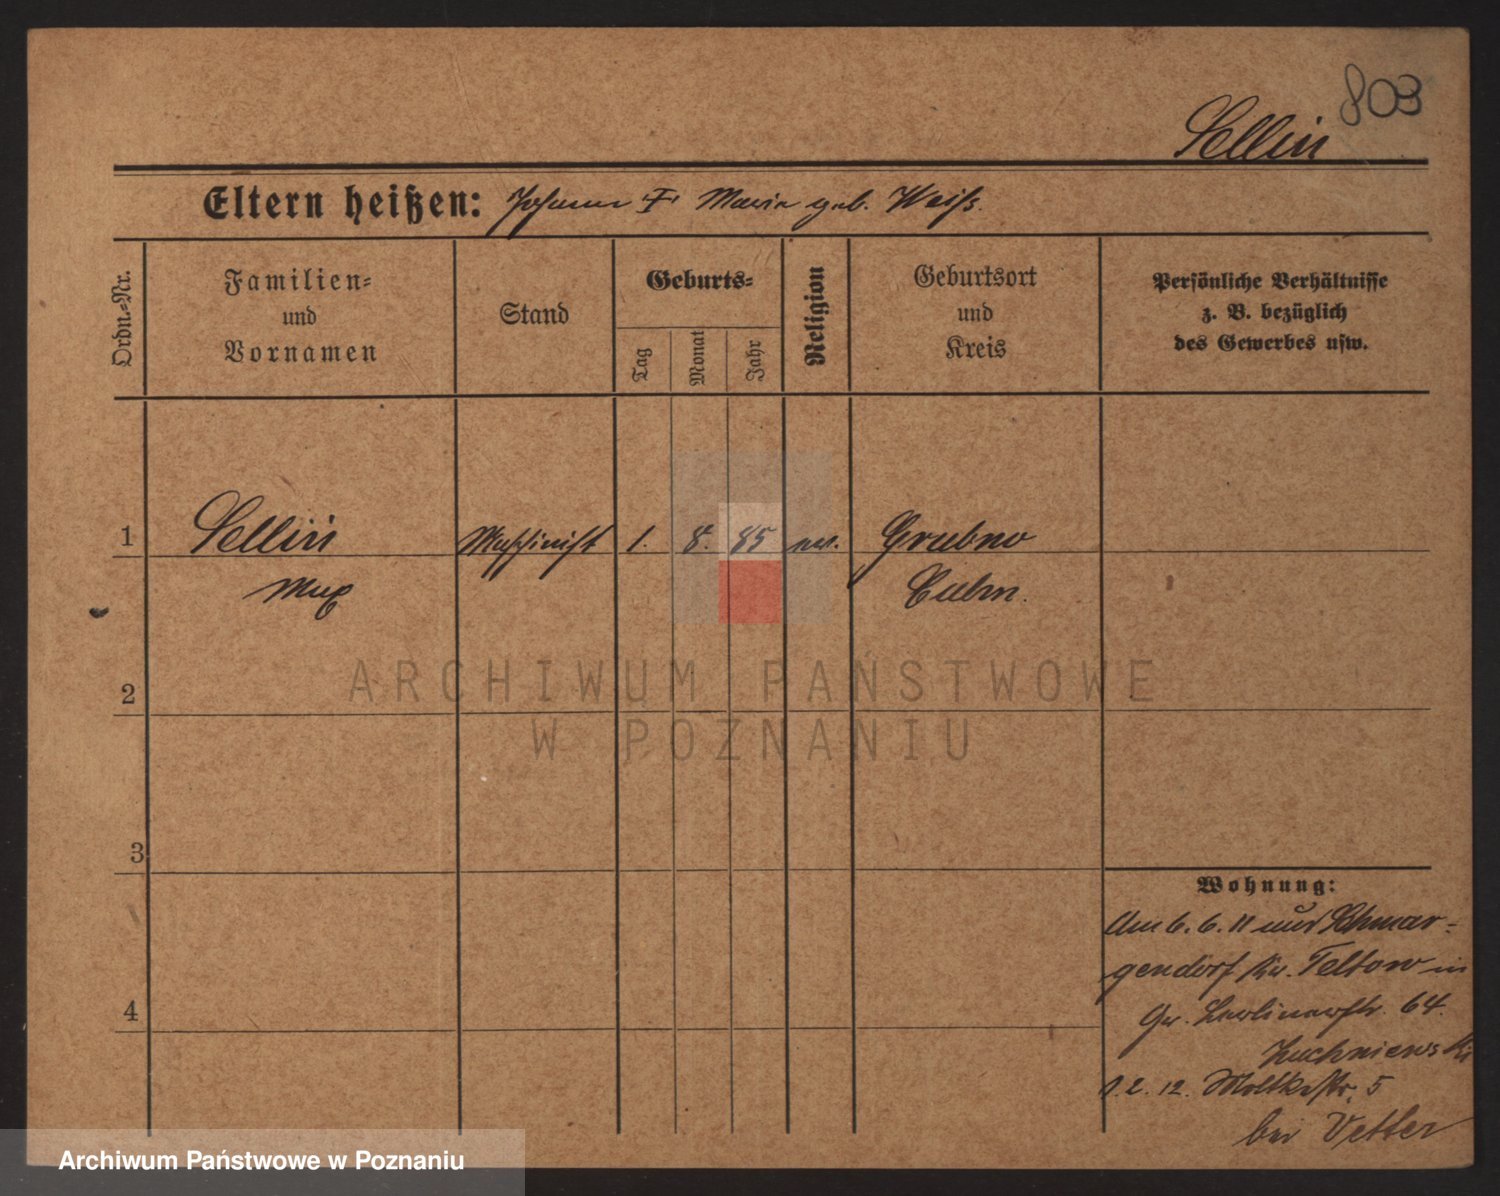 803
Sellin
Eltern heißen: Johann u. Marie geb. Weiß.
Ordn.-Nr.
Familien-
und
Vornamen
Stand
Geburts-
Tag
Monat
Jahr
Religion
Geburtsort
und
Kreis
Persönliche Verhältnisse
z. B. bezüglich
des Gewerbes usw.
1 Sellin Maschinist 1. 8. 85 ev. Grubno
Max Culm.
2
3
4
Wohnung:
Am 6. 6. 11 aus Schmar-
gendorf Kr. Teltow in
Gr. Berlinerstr. 64.
Zuchniewski
1. 2. 12. Moltkestr. 5
bei Vetter
ARCHIWUM PAŃSTWOWE
W POZNANIU
Archiwum Państwowe w Poznaniu